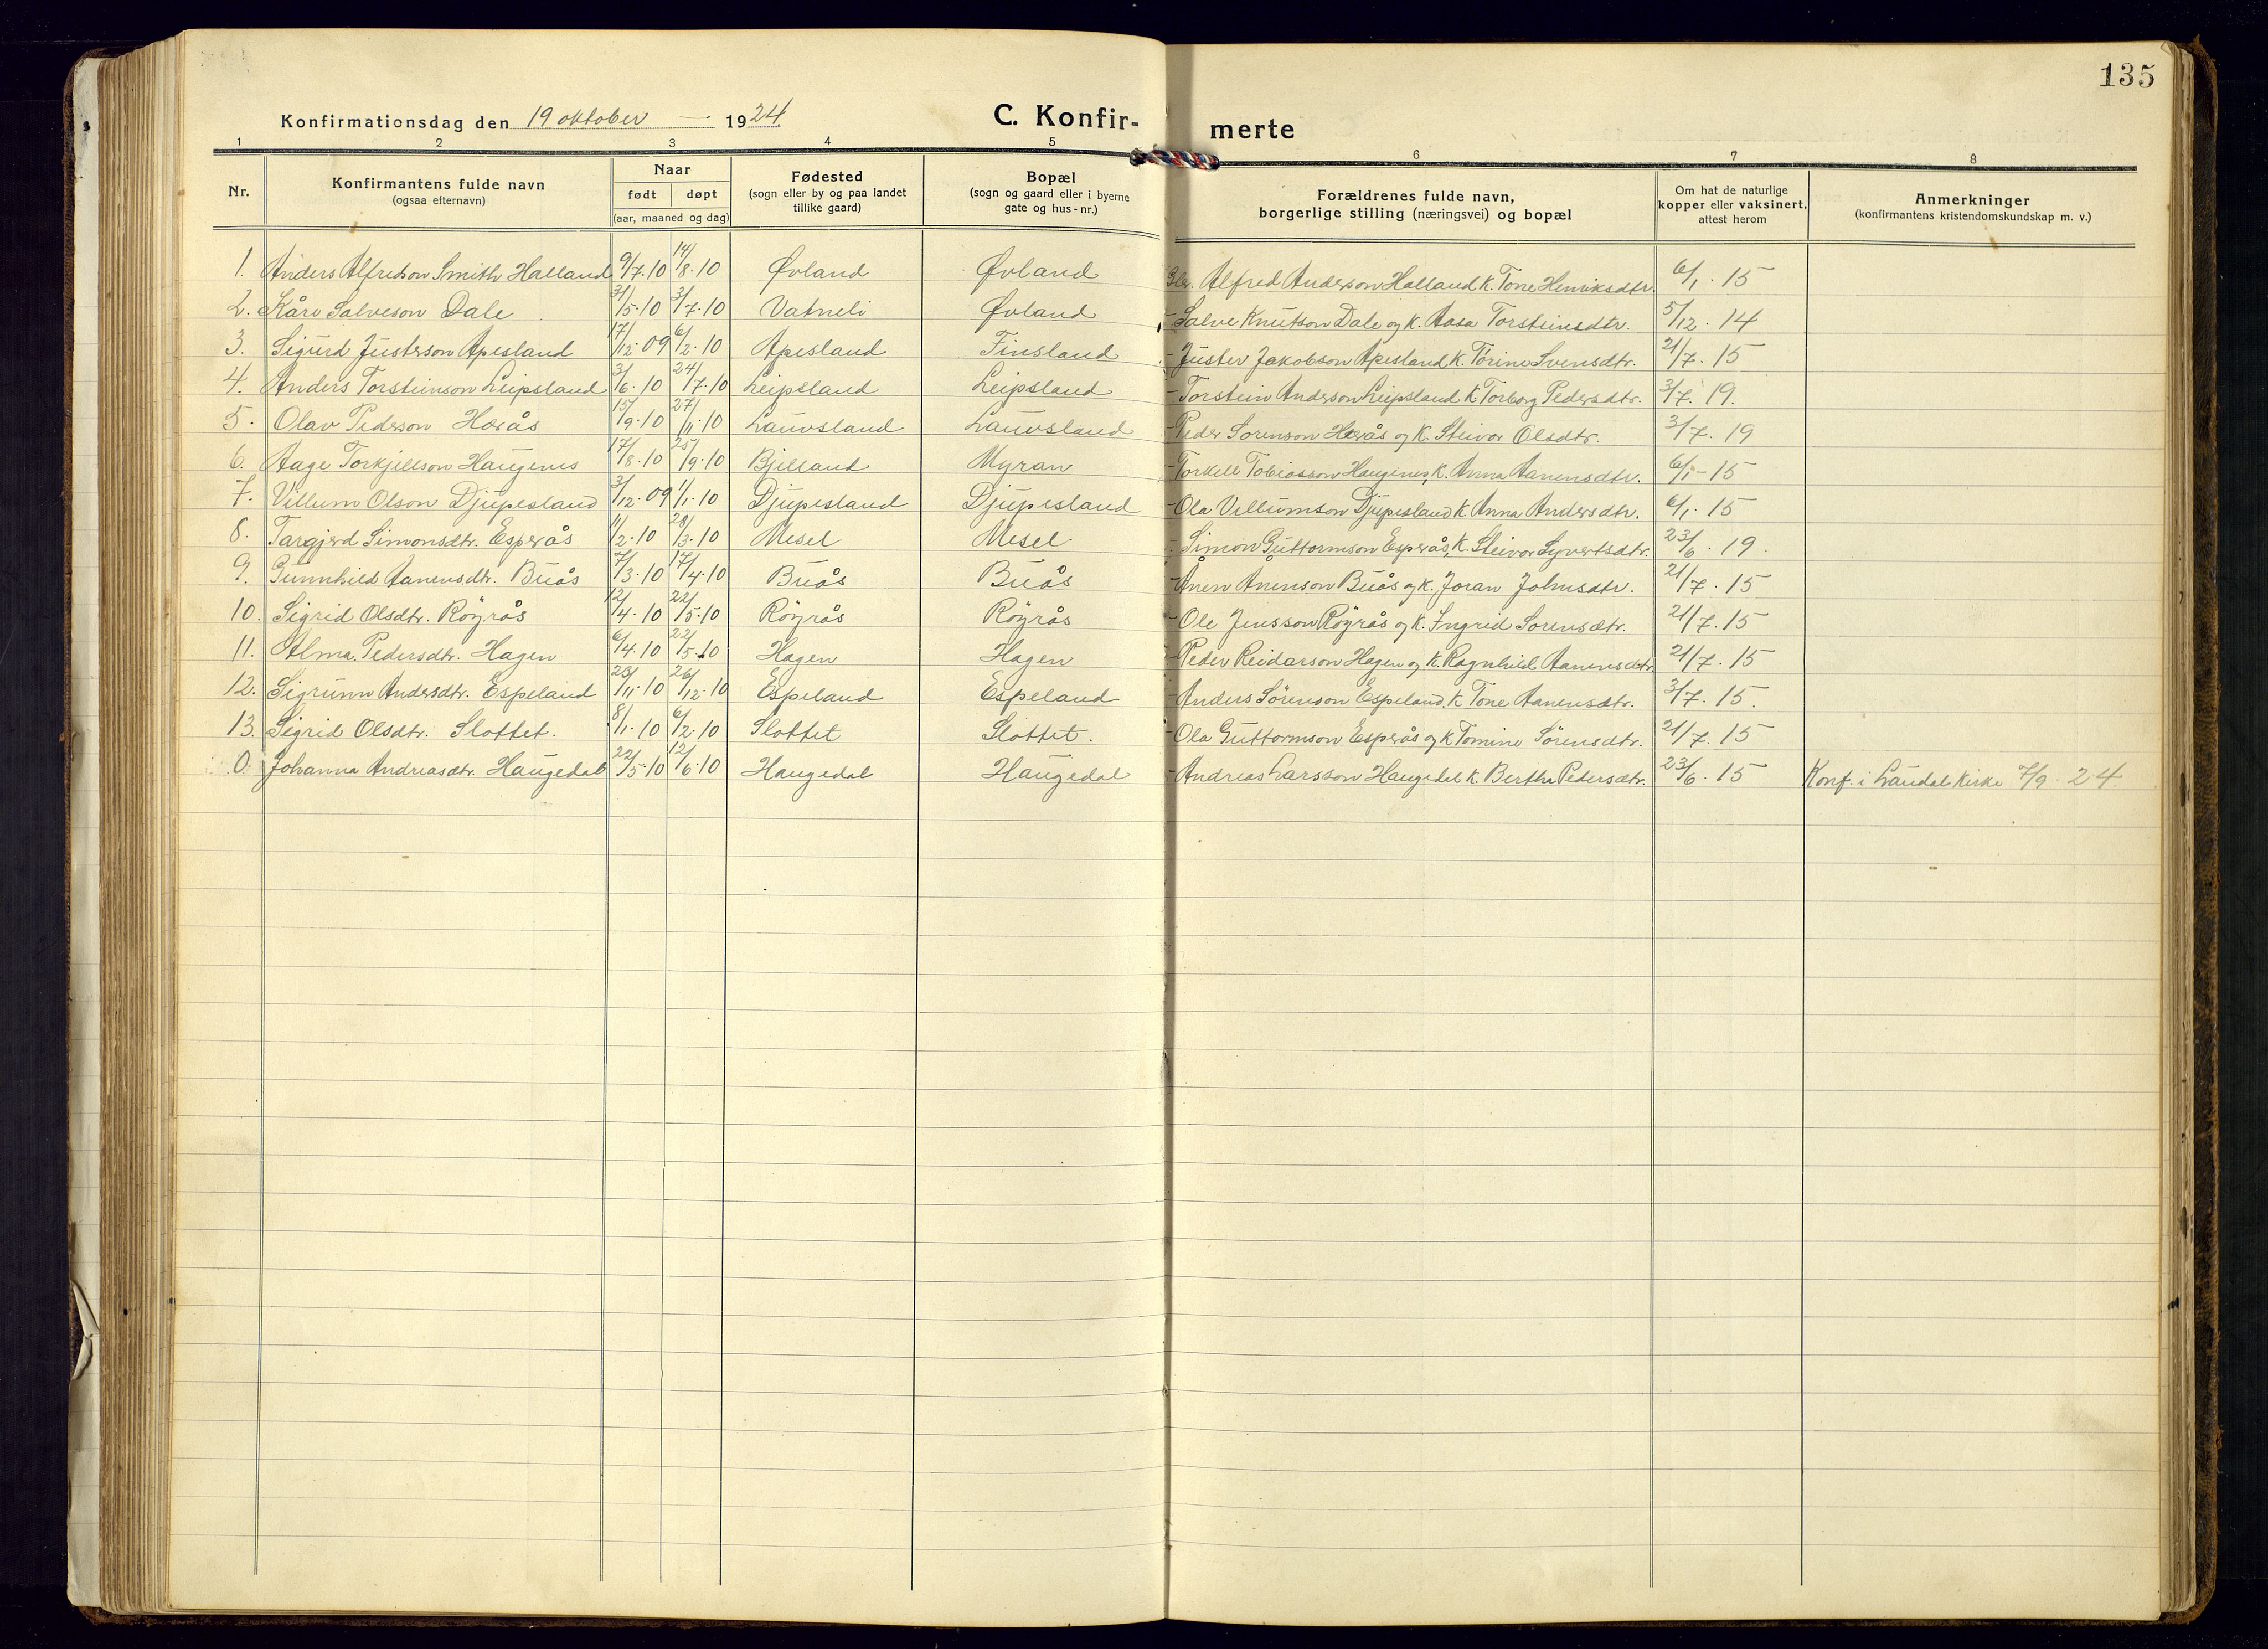 135
Konfirmationsdag den 19 oktober — 1924
C. Konfir- merte
1 2 3 4 5 6 7 8
Nr.
Konfirmantens fulde navn
(ogsaa efternavn)
Naar
født døpt
(aar, maaned og dag)
Fødested
(sogn eller by og paa landet
tillike gaard)
Bopæl
(sogn og gaard eller i byerne
gate og hus-nr.)
Forældrenes fulde navn,
borgerlige stilling (næringsvei) og bopæl
Om hat de naturlige
kopper eller vaksinert,
attest herom
Anmerkninger
(konfirmantens kristendomskundskap m. v.)
1. Anders Alfredson Smith Halland 9/7.10 14/8.10 Øvland Øvland Alfred Anderson Halland k. Tone Henriksdtr. 6/1.15
2. Kåre Salveson Dale 31/5.10 3/7.10 Vatneli Øvland - Salve Knutson Dale og k. Aasa Torsteinsdtr. 5/12.14
3. Sigurd Justerson Apesland 17/12.09 6/2.10 Apesland Finsland - Juster Jakobson Apesland k. Torine Svensdtr. 21/7.15
4. Anders Torsteinson Leipsland 3/6.10 24/7.10 Leipsland Leipsland - Torstein Anderson Leipsland k Torborg Pedersdtr. 3/7.19.
5. Olav Pederson Herås 15/9.10 27/11.10 Lauvsland Lauvsland - Peder Sorenson Herås og k. Steivor Olsdtr. 3/7.19
6. Aage Torkjellson Haugenes 17/8.10 25/9.10 Bjelland Myran - Torkell Tobiasson Haugenes, k. Anna Aanensdtr. 6/1-15
7. Villum Olson Djupesland 3/12.09 1/1.10 Djupesland Djupesland - Ola Villumson Djupesland k Anna Andersdtr. 6/1.15
8. Targjerd Simonsdtr. Esperås 11/2.10 28/3.10 Mesel Mesel - Simon Guttormson Esperås, k. Steivor Syvertsdtr. 23/6.19.
9. Gunnhild Aanensdtr. Buås 7/3.10 17/4.10 Buås Buås - Ånen Ånenson Buås og k. Joran Johnsdtr. 21/7.15
10. Sigrid Olsdtr. Röyrås 12/4.10 22/5.10 Röyrås Röyrås - Ole Jensson Röyrås og k. Ingrid Sorensdtr. 21/7.15
11. Alma Pedersdtr. Hagen 6/4.10 22/5.10 Hagen Hagen - Peder Reidarson Hagen og k. Ragnhild Aanensdtr 21/7.15
12. Sigrunn Andersdtr. Espeland 23/11.10 26/12.10 Espeland Espeland - Anders Sörenson Espeland, k Tone Aanensdtr. 3/7.15.
13. Sigrid Olsdtr. Slottet. 8/1.10 6/2.10 Slottet Slottet. - Ola Guttormson Esperås og k Tomine Sörensdtr. 21/7.15
0. Johanna Andreasdtr. Haugedal 22/5.10 12/6.10 Haugedal Haugedal - Andreas Larsson Haugedal k. Bertha Pedersdtr. 23/6.15 Konf. i Laudal kirke 7/9.24